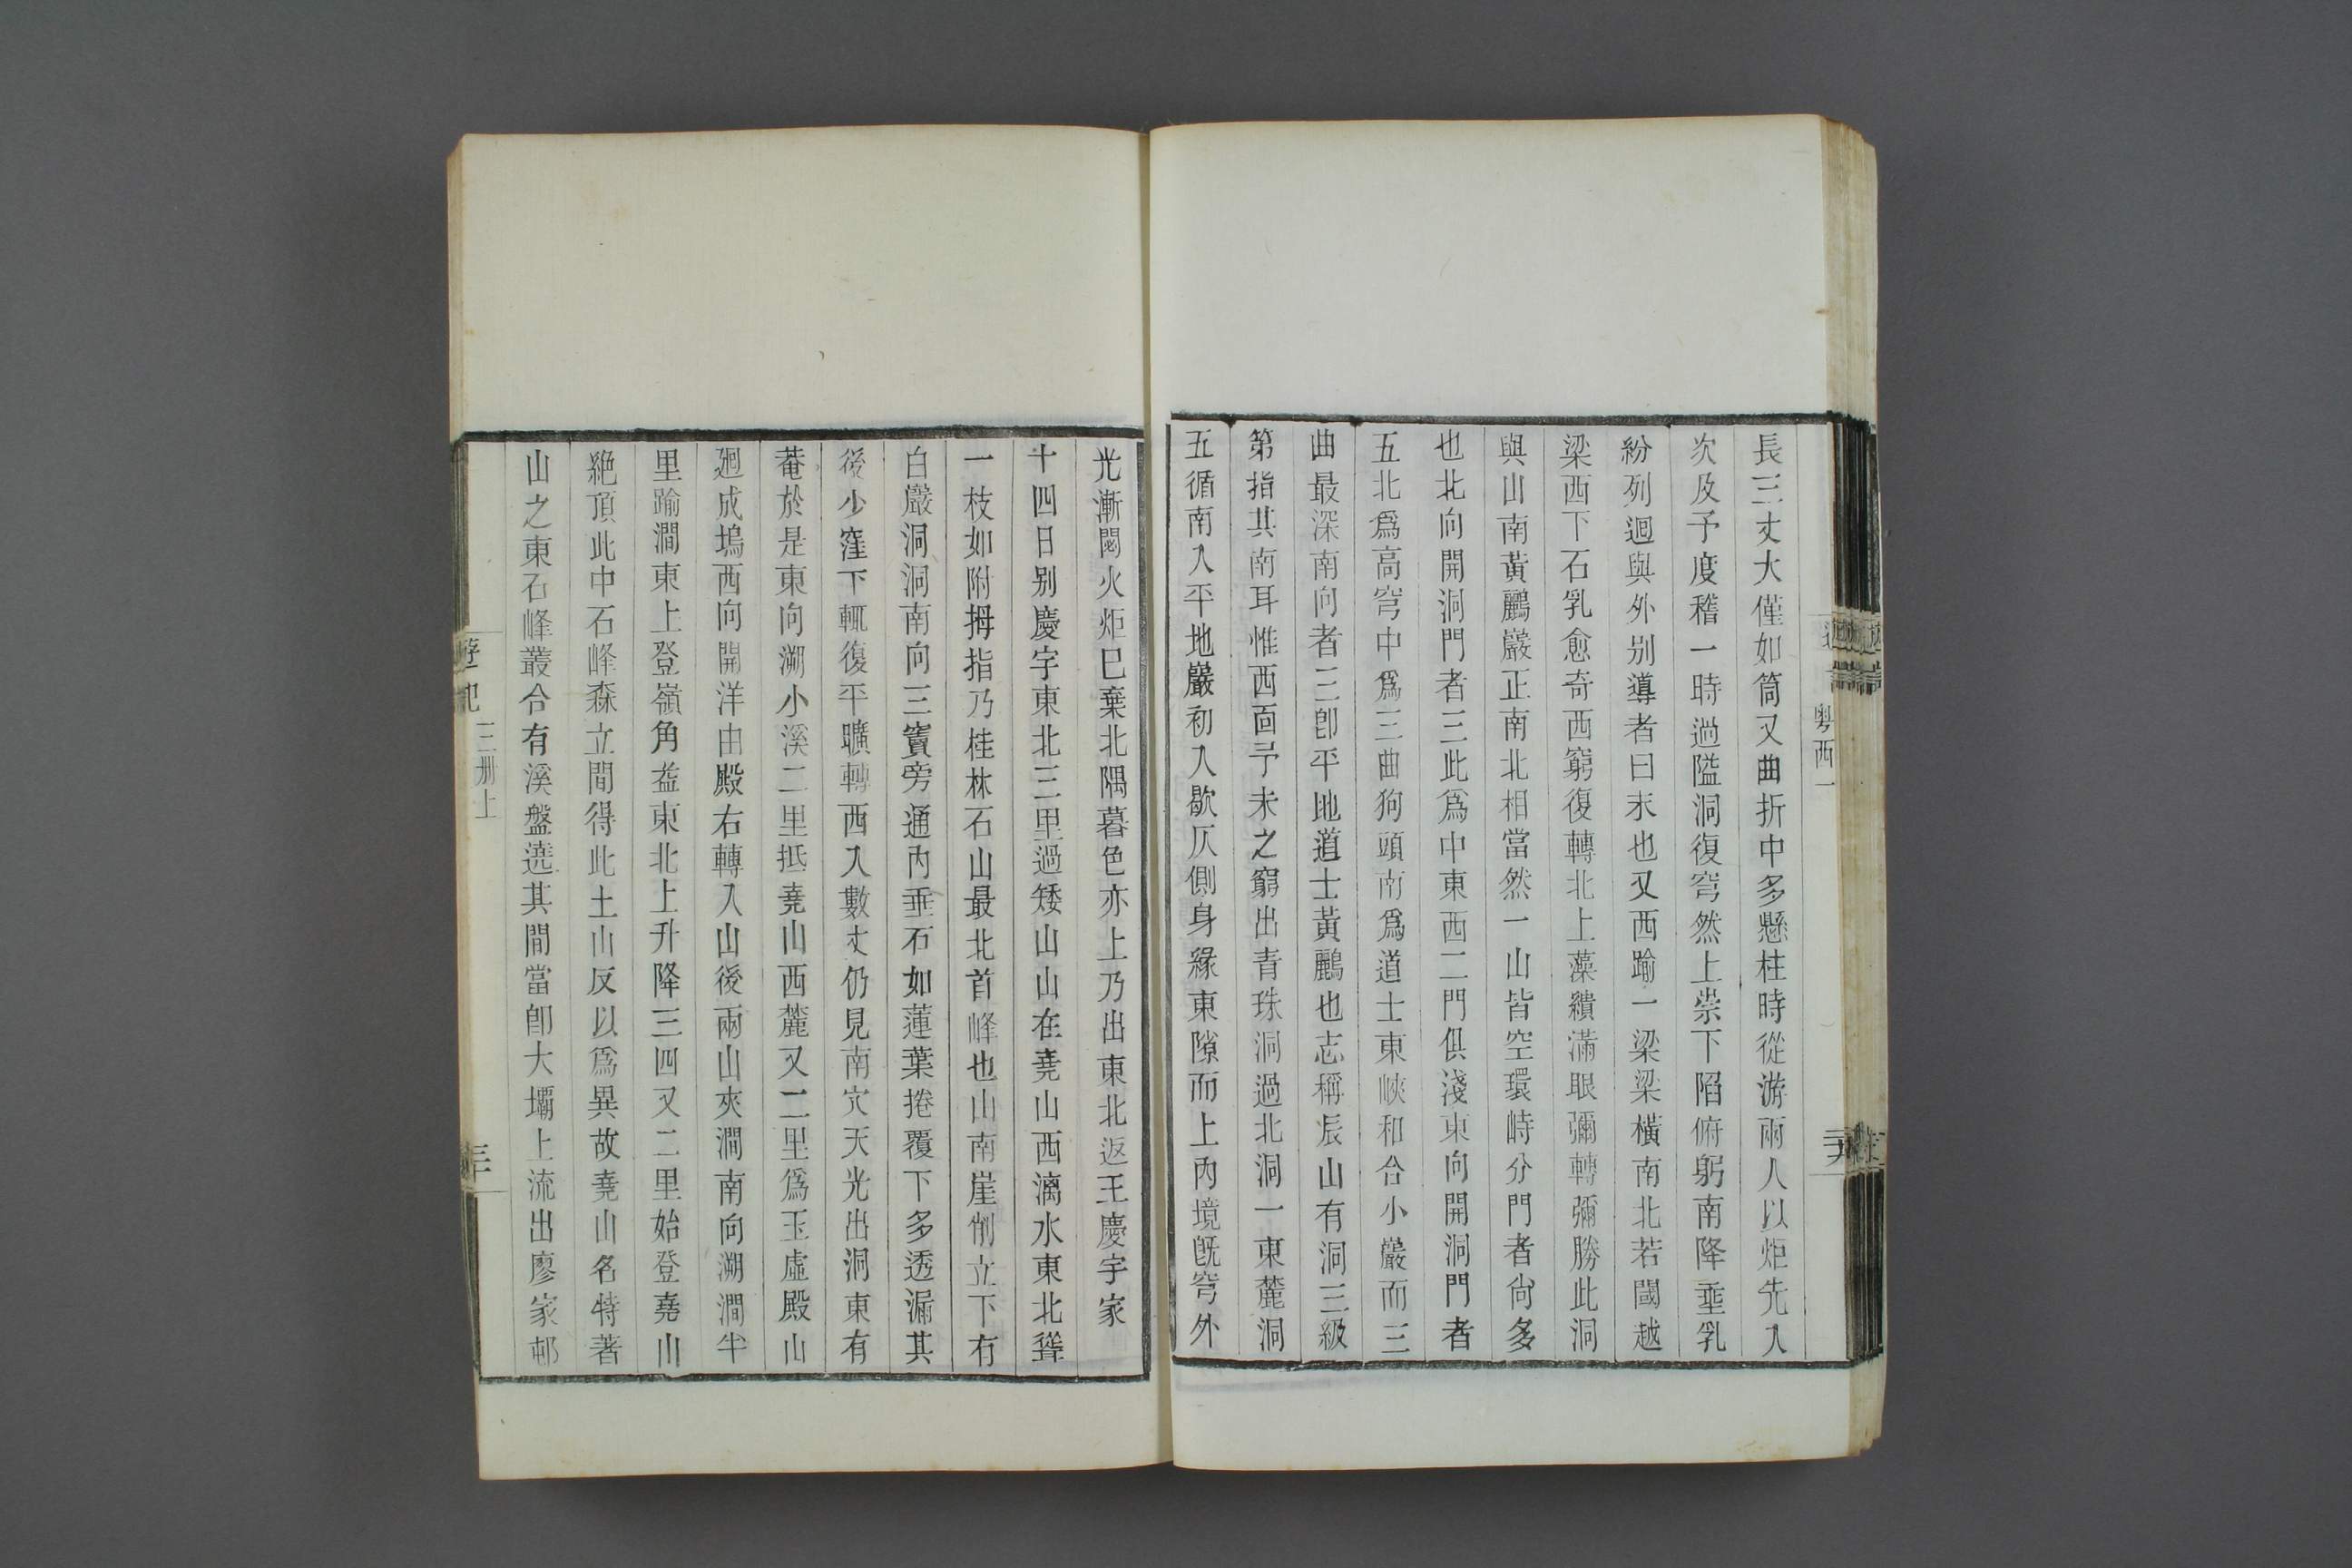 粤西一
長三丈大僅如筒又曲折中多懸柱時從游兩人以炬先入
次及予度稽一時過隘洞復穹然上崇下陷俯躬南降垂乳
紛列迥與外别導者曰末也又西踰一梁梁橫南北若閾越
梁西下石乳愈奇西窮復轉北上藻繢滿眼彌轉彌勝此洞
與山南黃鸝巖正南北相當然一山皆空環峙分門者尙多
也北向開洞門者三此爲中東西二門俱淺東向開洞門者
五北爲高穹中爲三曲狗頭南爲道士東峽和合小巖而三
曲最深南向者三卽平地道士黃鸝也志稱辰山有洞三級
第指其南耳惟西面予未之窮出青珠洞過北洞一東麓洞
五循南入平地巖初入歇仄側身緣東隙而上內境旣穹外
光漸閟火炬已棄北隅暮色亦上乃出東北返王慶宇家
十四日别慶宇東北三里過矮山山在堯山西漓水東北聳
一枝如附拇指乃桂林石山最北首峰也山南崖削立下有
白巖洞洞南向三竇旁通內垂石如蓮葉捲覆下多透漏其
後少窪下輒復平曠轉西入數丈仍見南穴天光出洞東有
菴於是東向溯小溪二里抵堯山西麓又二里爲玉虛殿山
迴成塢西向開洋由殿右轉入山後兩山夾澗南向溯澗半
里踰澗東上登嶺角益東北上升降三四又二里始登堯山
絶頂此中石峰森立間得此土山反以爲異故堯山名特著
山之東石峰叢合有溪盤遶其間當卽大壩上流出廖家邨
遊記
三册上
三十